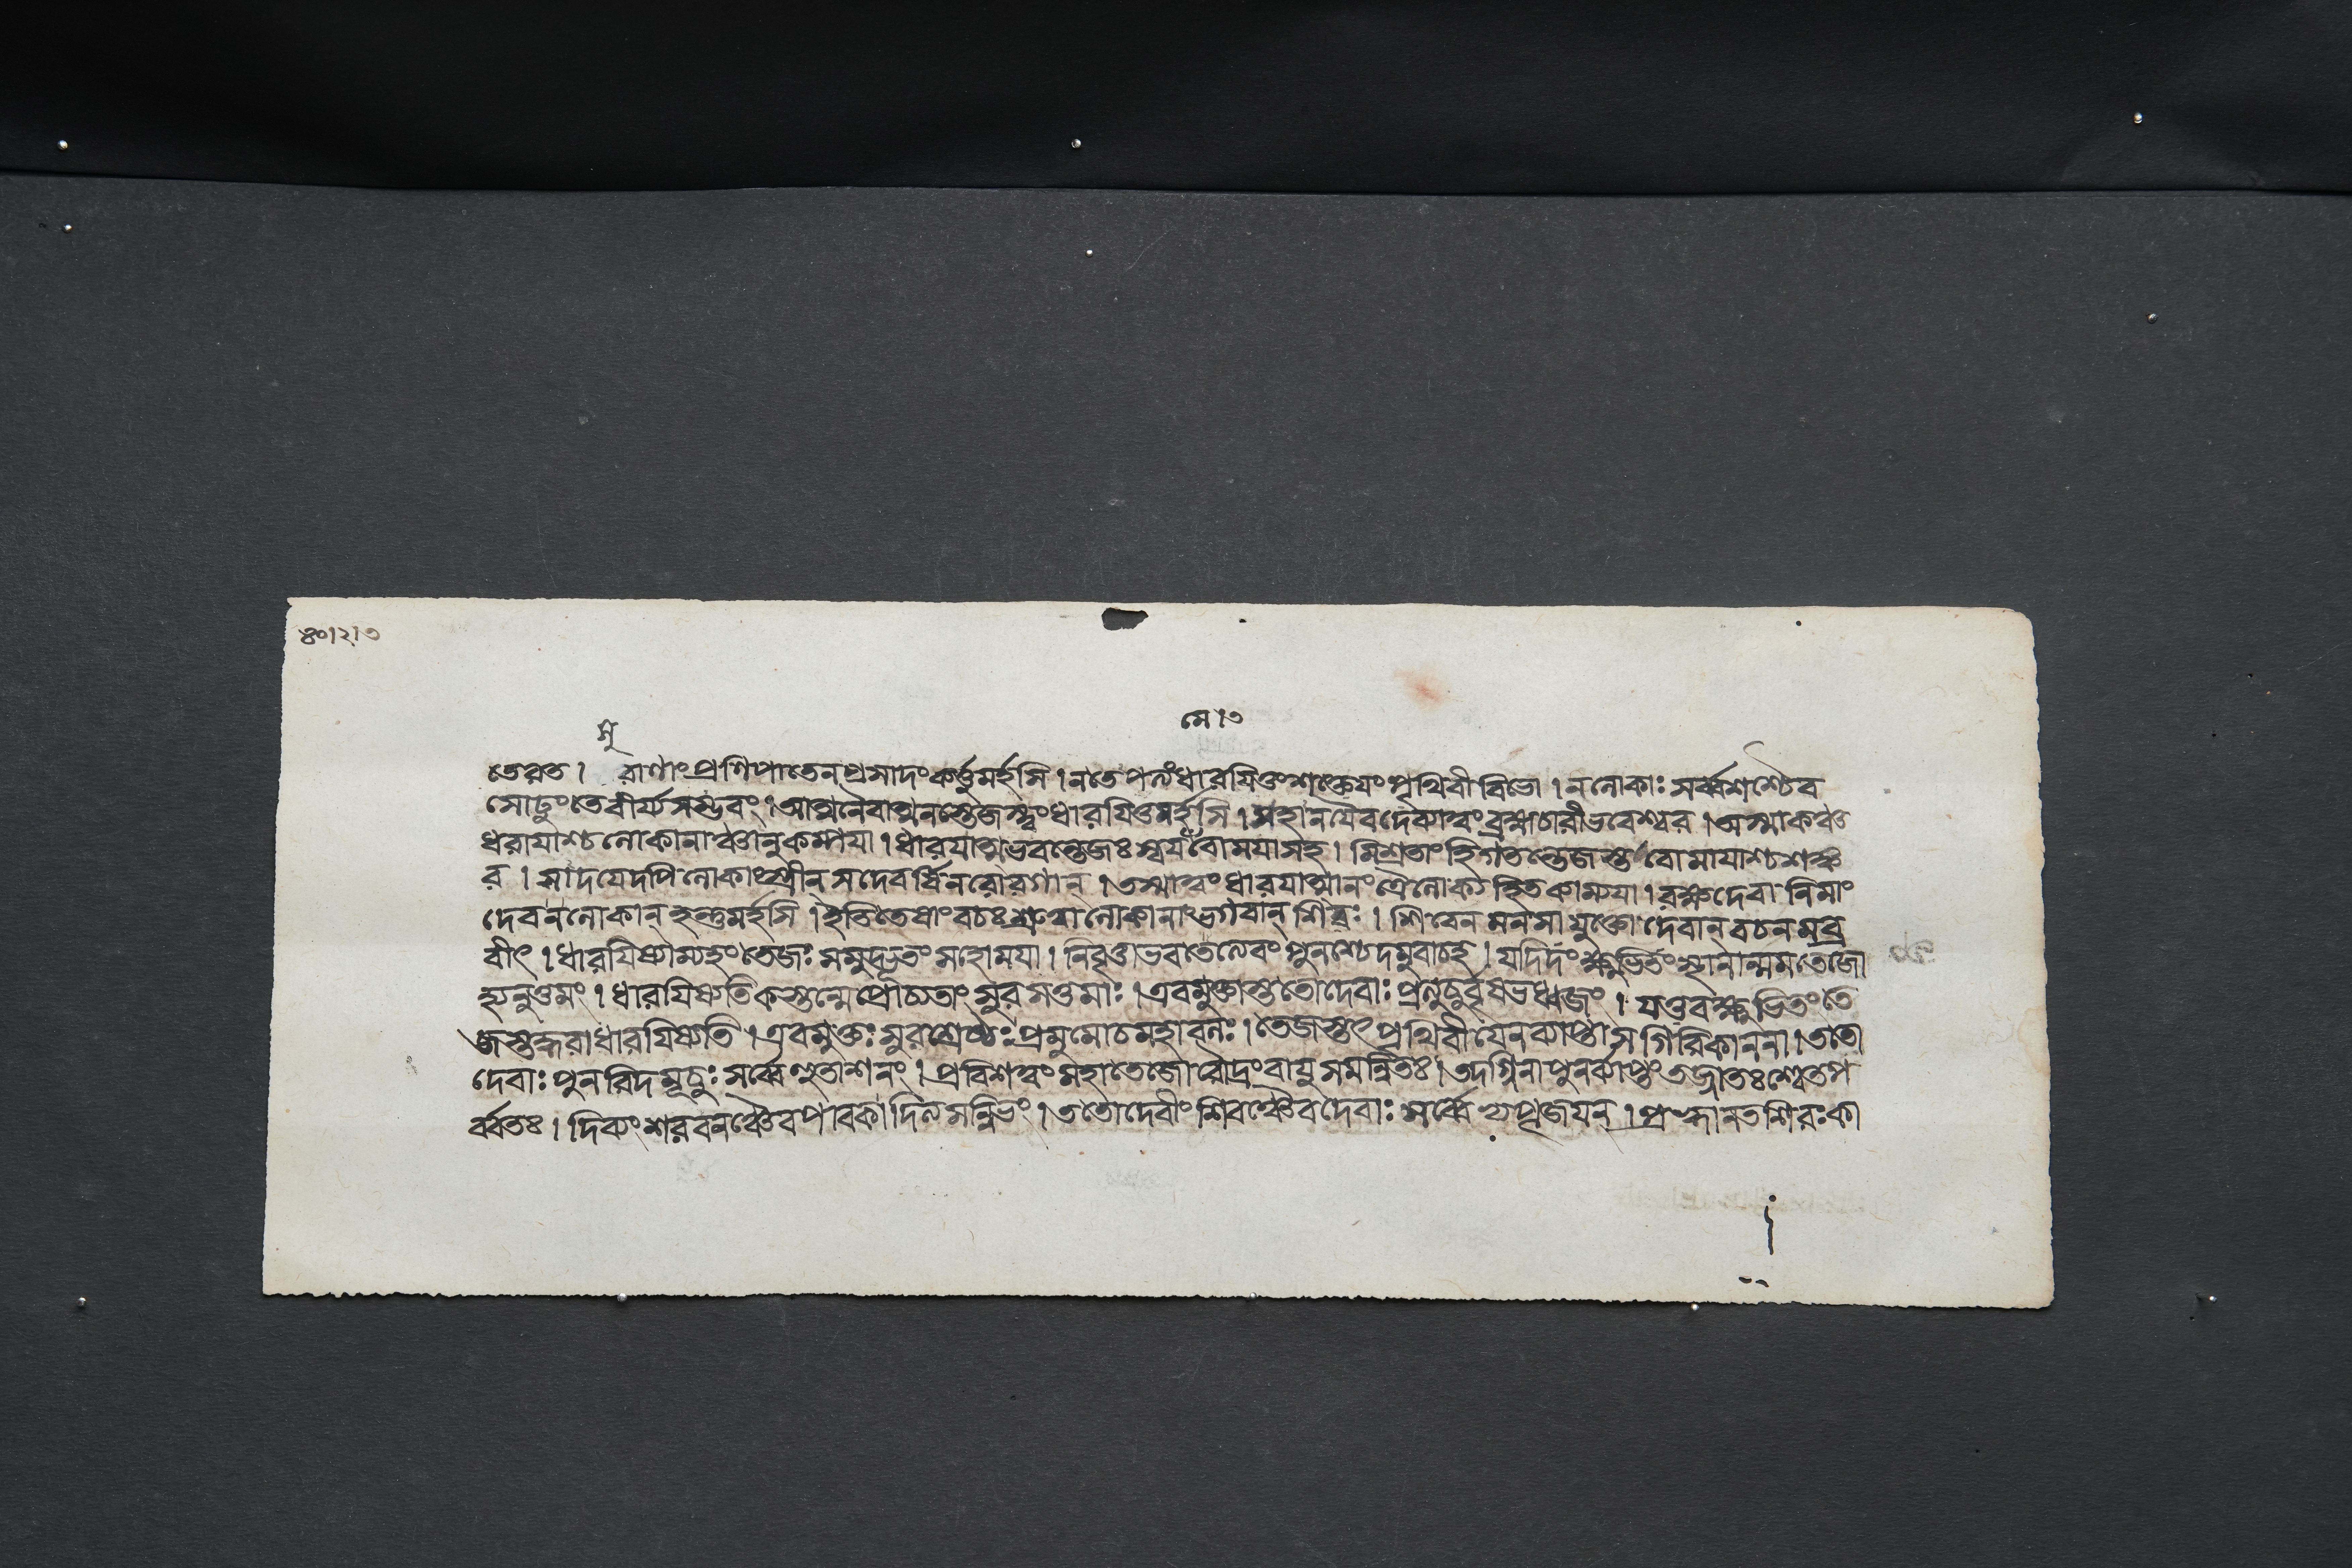 ৪০।২।৩
মে।৩
সু
তেরত। রাণাং প্রণিপাতেন প্রসাদং কর্ত্তুমর্হসি। ন তে বলং ধারয়িতুং শক্তেয়ং পৃথিবী বিভো। ন লোকাঃ সর্ব্বশশ্চৈব
সোঢুং তে বীর্য্যসম্ভবং। আত্মনৈবাত্মনস্তেজস্ত্বং ধারয়িতুমর্হসি। সহানয়ৈব দেব্যাত্বং ব্রহ্মচারী ভবেশ্বর। অস্মাকঞ্চ
ধরায়াশ্চ লোকানাঞ্চানুকম্পয়া। ধারয়াত্মভবন্তেজঃ স্বয়ং বোময়া সহ। মিশ্রতাং হি গতন্তেজস্তবোমায়াশ্চ শঙ্ক
র। সাদয়েদপি লোকাংস্ত্রীন্ সদেবর্ষিনরোরগান্। তস্মাত্বং ধারয়াত্মানং ত্রৈলোক্যহিতকাম্যয়া। রক্ষ দেবা নিমাং
দেব ন লোকান্ হন্তুমর্হসি। ইতি তেষাং বচঃ শ্রুত্বা লোকানাং ভগবান্ শিবঃ। শিবেন মনসা যুক্তো দেবান্ বচনমব্র
বীৎ। ধারয়িষ্যাম্যহং তেজঃ সমুদ্ভূতং সহোময়া। নিবৃত্তা ভবতেত্যেবং পুনশ্চেদমুবাচ হ। যদিদং ক্ষুভিতং স্থানান্মম তেজো
হ্যনুত্তমং। ধারয়িষ্যতি কস্তন্মে প্রোচ্যতাং সুরসত্তমাঃ। এবমুক্তাস্ততো দেবাঃ প্রত্যূচুর্বৃষভধ্বজং। যত্তব ক্ষুভিতং তে
জস্তদ্ধরা ধারয়িষ্যতি। এবমুক্তঃ সুরশ্রেষ্ঠঃ প্রমুমোচ মহাবলঃ। তেজস্তৎ পৃথিবী যেন ব্যাপ্তা সগিরিকাননা। ততো
দেবাঃ পুনরিদমূচুঃ সর্ব্বে হুতাশনং। প্রবিশ ত্বং মহাতেজো রৌদ্রং বায়ুসমন্বিতঃ। তদগ্নিনা পুনর্ব্যাপ্তং তজ্জাতঃ শ্বেতপ
র্ব্বতঃ। দিব্যং শরবনঞ্চৈব পাবকাদিত্যসন্নিভং। ততো দেবীং শিবঞ্চৈব দেবাঃ সর্ব্বে প্যপূজয়ন্। প্রহ্বানতশিরঃ কা